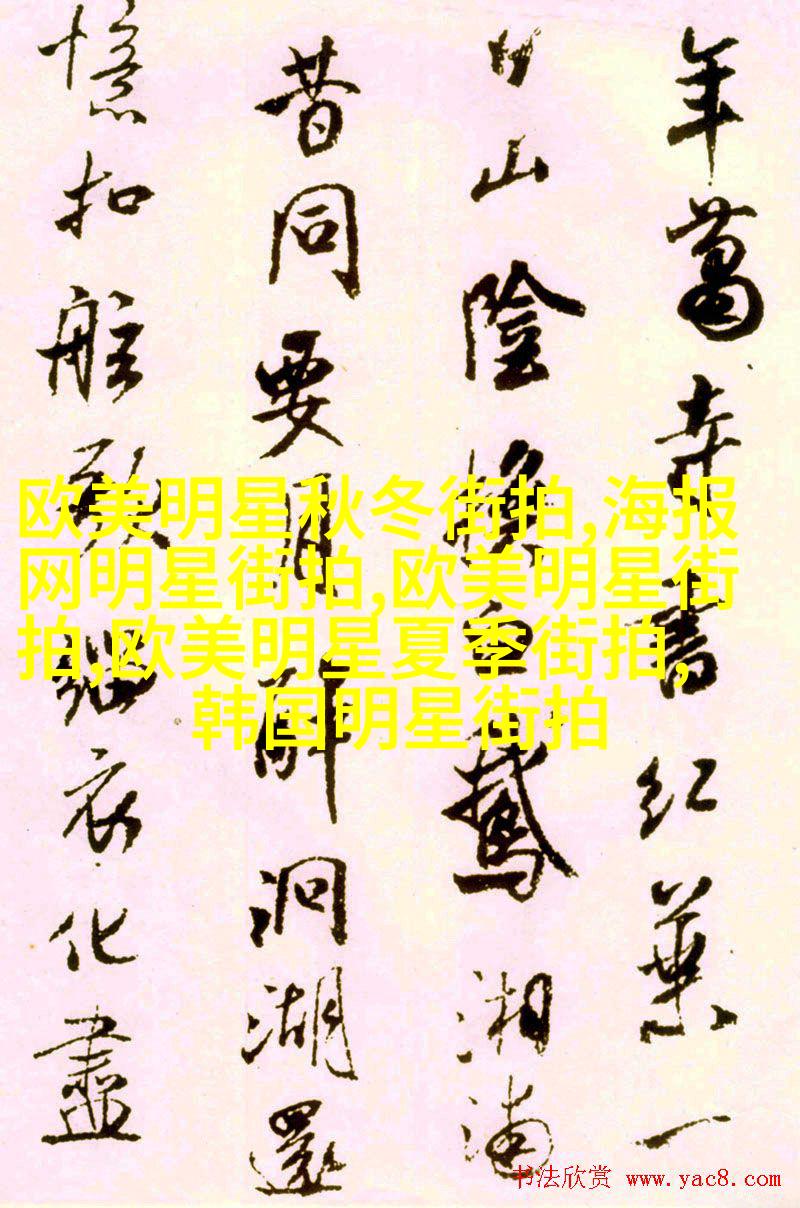 年蕭寺書紅葉一
日山陰換白鵝湘浦
昔同要月醉洞湖還
憶扣舷歌緇衣化盡
欧美明星秋冬街拍,海报
网明星街拍,欧美明星街
拍,欧美明星夏季街拍,
韩国明星街拍
书法欣赏 www.yac8.com